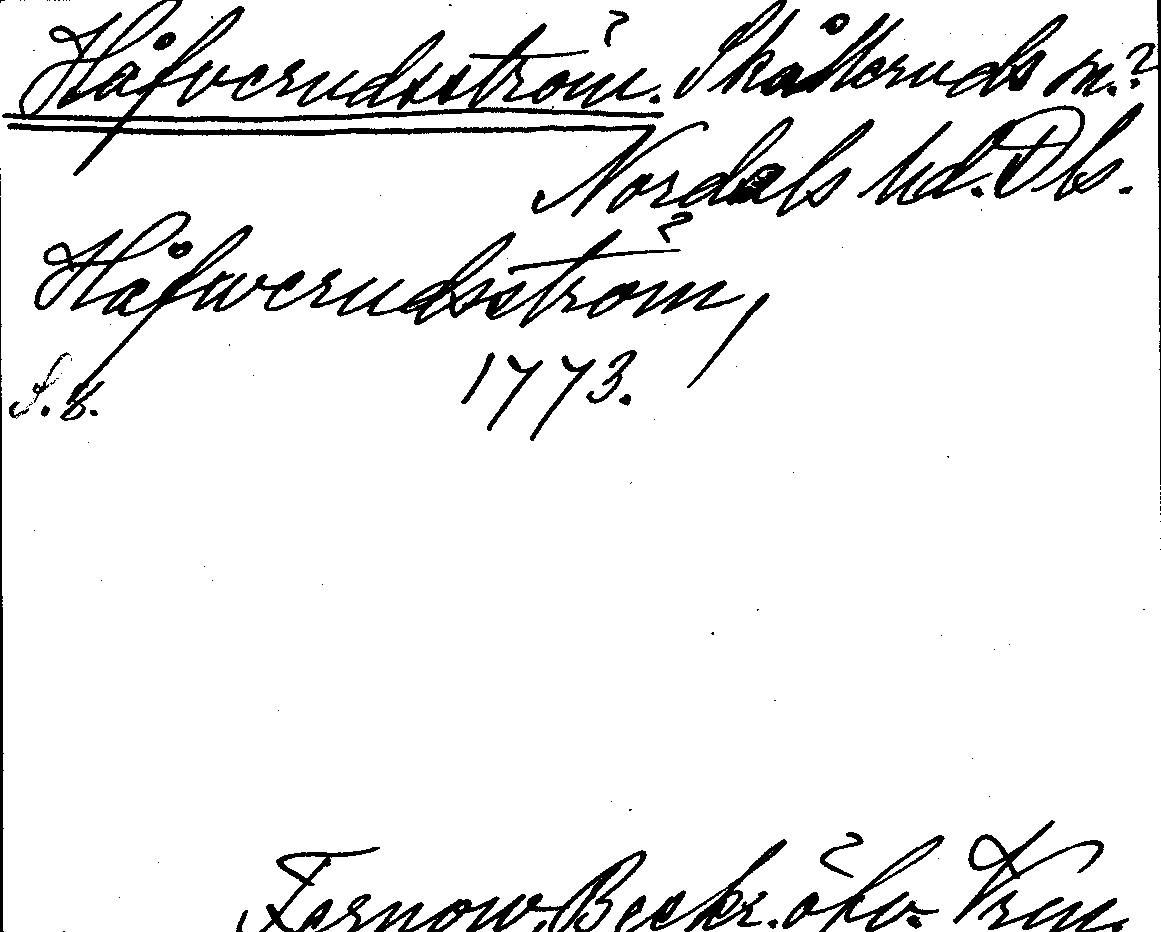 Håfverudsström. Skålleruds sn.?
Nordals hd. Dls.
Håfwerudsström,
1773.
S. 8.
Fernow, Beskr. öfv. Vrm.